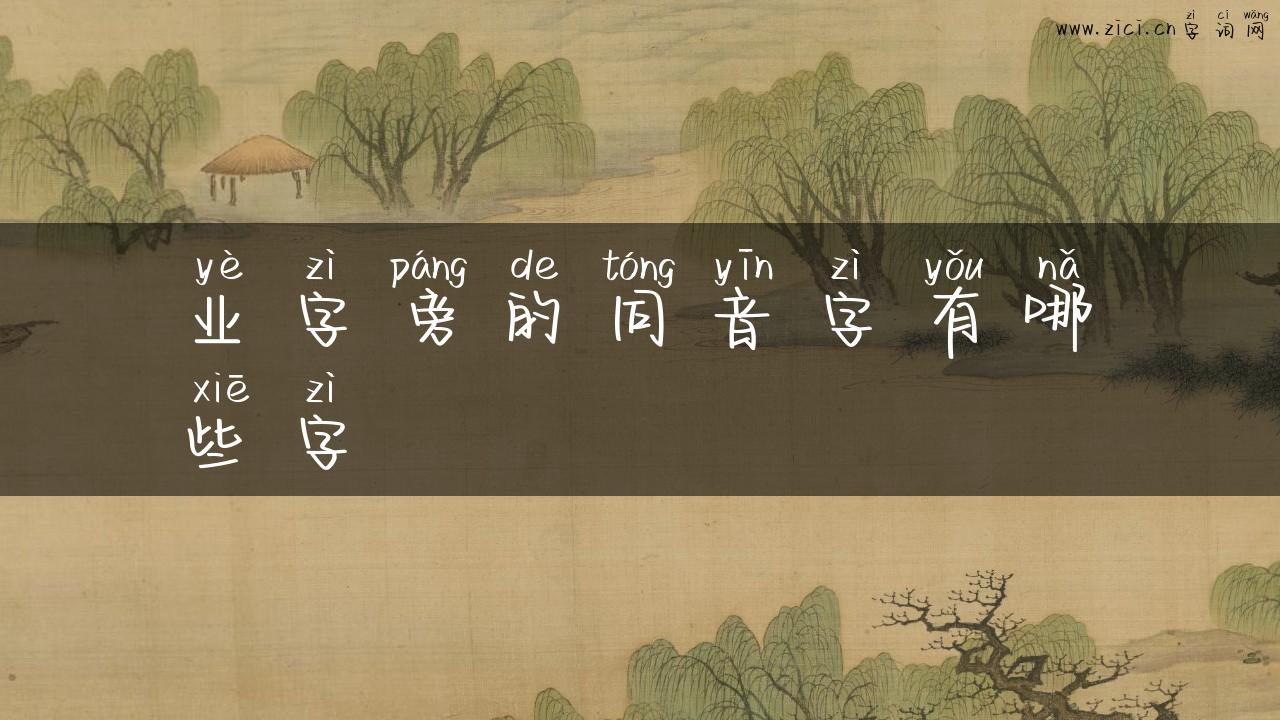 zì cí wǎng
www.zici.cn 字词网
yè zì páng de tóng yīn zì yǒu nǎ
业字旁的同音字有哪
xiē zì
些字